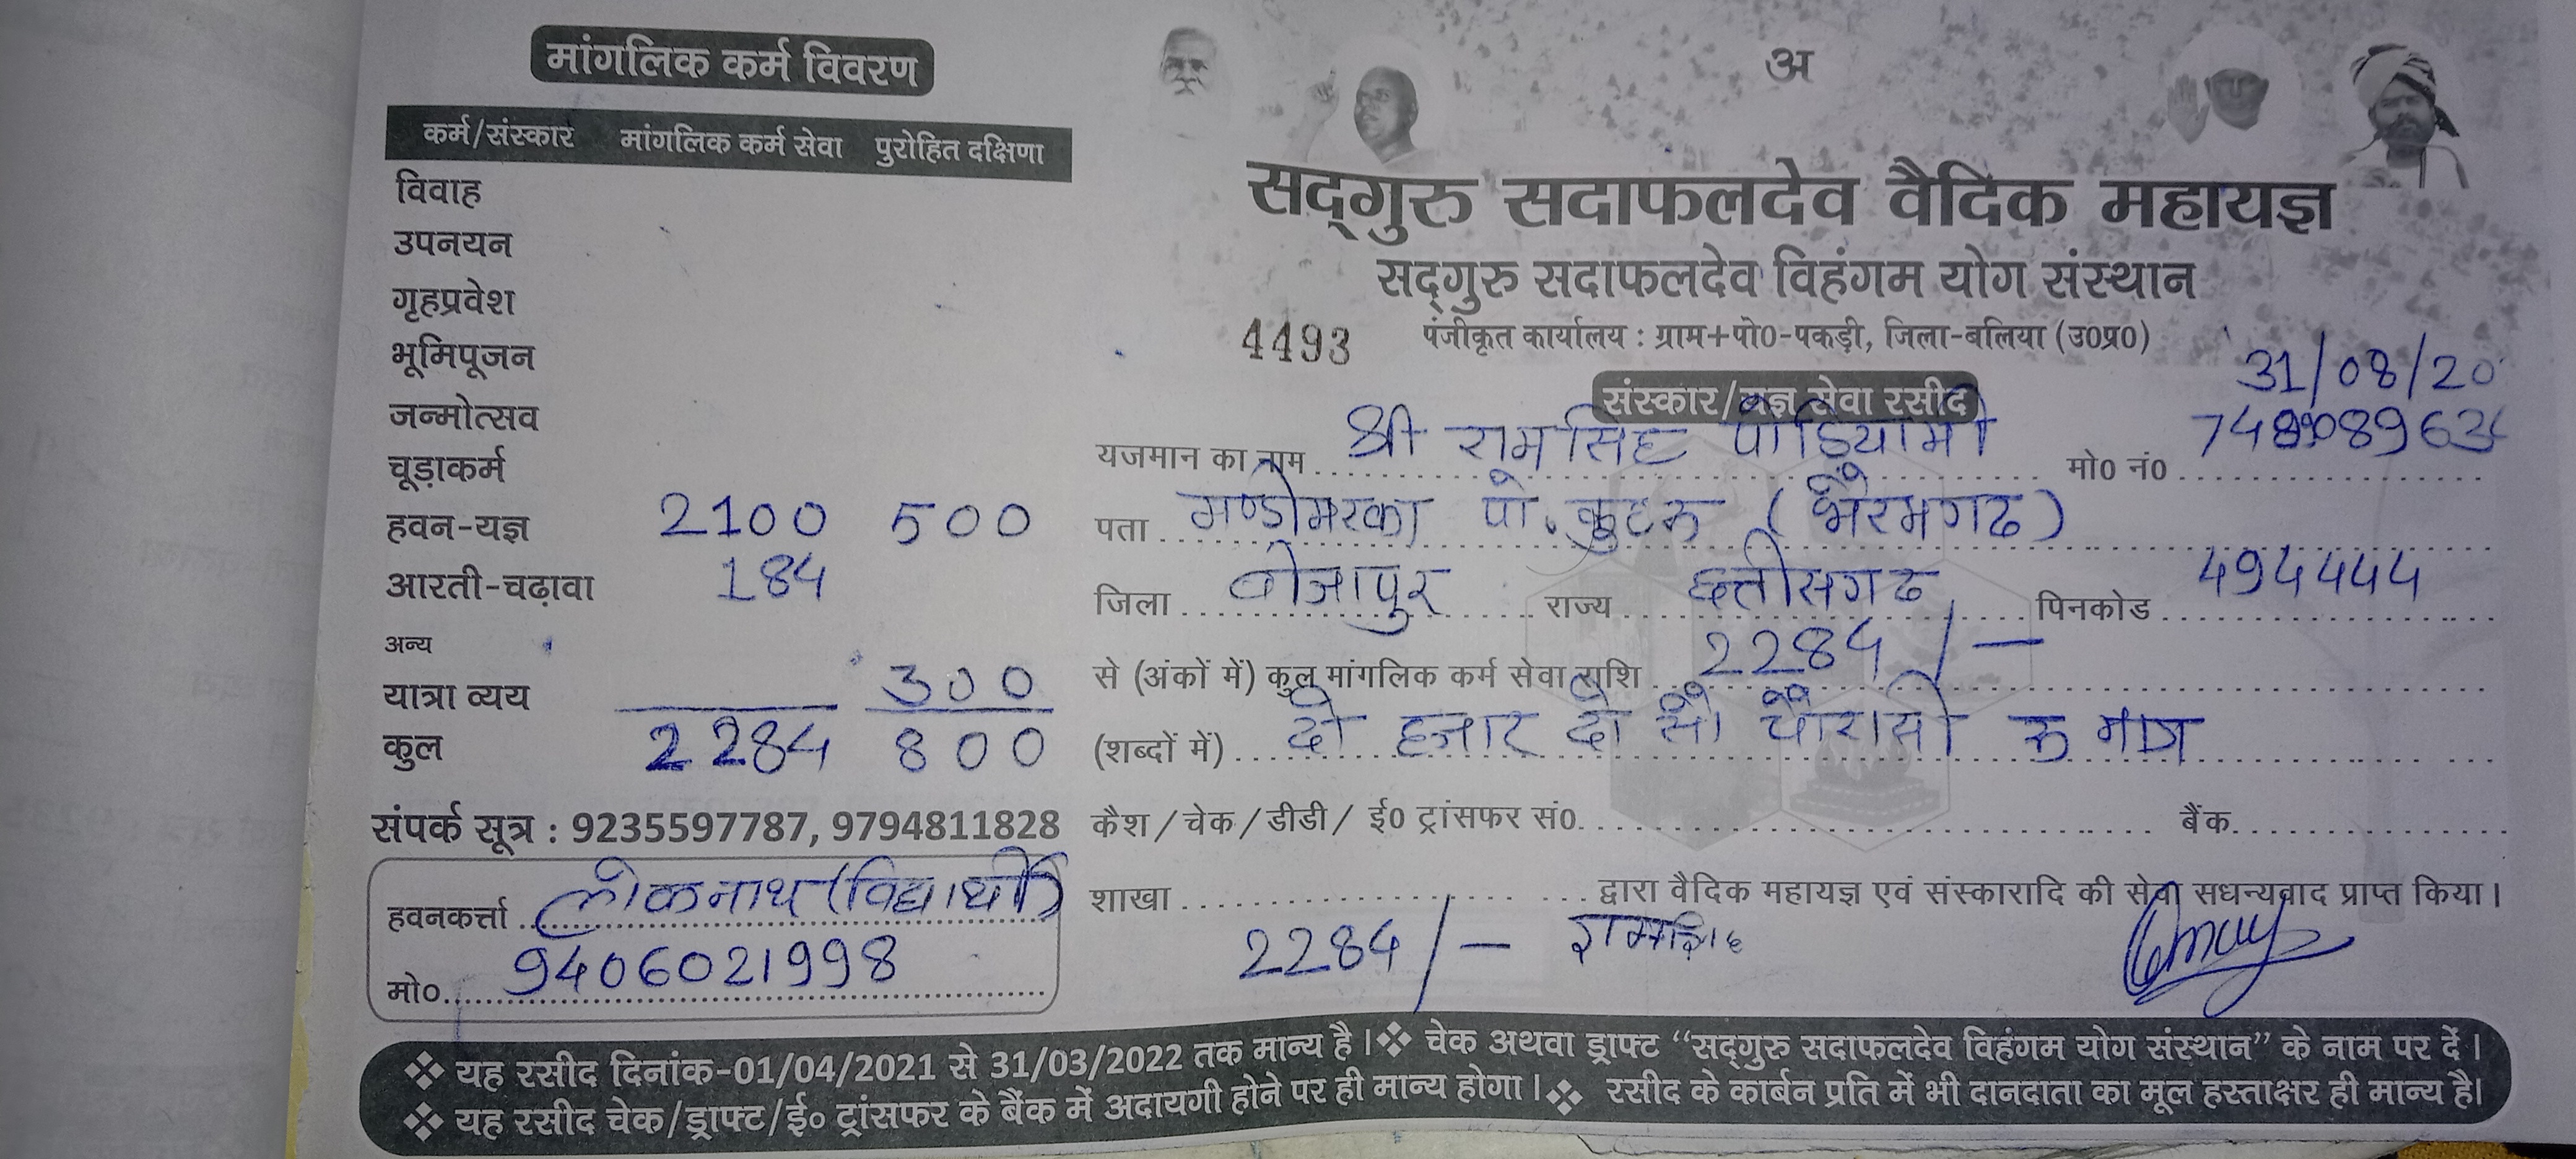 मांगलिक कर्म विवरण
कर्म/संस्कार मांगलिक कर्म सेवा पुरोहित दक्षिणा
विवाह
उपनयन
गृहप्रवेश
भूमिपूजन
जन्मोत्सव
चूड़ाकर्म
हवन-यज्ञ 2100 500
आरती-चढ़ावा 184
अन्य
यात्रा व्यय 300
कुल 2284 800
संपर्क सूत्र : 9235597787, 9794811828
हवनकर्त्ता लोकनाथ (विद्यार्थी)
मो० 9406021998
अ
सद्गुरु सदाफलदेव वैदिक महायज्ञ
सद्गुरु सदाफलदेव विहंगम योग संस्थान
4493 पंजीकृत कार्यालय : ग्राम+पो0-पकड़ी, जिला-बलिया (उ0प्र0)
31/08/20
संस्कार/यज्ञ सेवा रसीद
यजमान का नाम श्री रामसिंह पोडियामी मो0 नं0
पता पो. कुटरू (भैरमगढ)
जिला बीजापुर राज्य छत्तीसगढ पिनकोड 494444
से (अंकों में) कुल मांगलिक कर्म सेवा राशि 2284/-
(शब्दों में) दो हजार दो सौ चौरासी रू मात्र
कैश / चेक / डीडी / ई0 ट्रांसफर सं0. बैंक
शाखा द्वारा वैदिक महायज्ञ एवं संस्कारादि की सेवा सधन्यवाद प्राप्त किया।
2284/- रामसिंह
❖ यह रसीद दिनांक-01/04/2021 से 31/03/2022 तक मान्य है। ❖ चेक अथवा ड्राफ्ट “सद्गुरु सदाफलदेव विहंगम योग संस्थान” के नाम पर दें।
❖ यह रसीद चेक/ड्राफ्ट/ई० ट्रांसफर के बैंक में अदायगी होने पर ही मान्य होगा। ❖ रसीद के कार्बन प्रति में भी दानदाता का मूल हस्ताक्षर ही मान्य है।